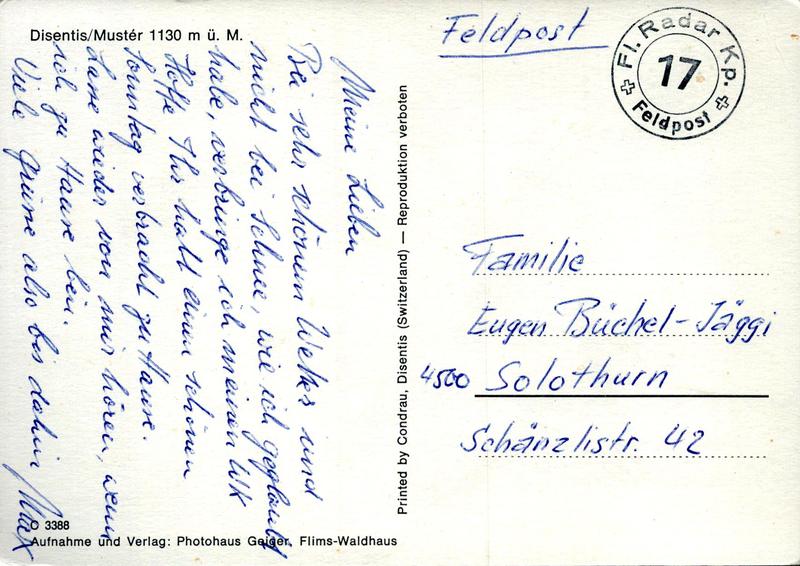 Disentis/Mustér 1130 m ü. M.
Meine Lieben
Bei sehr schönem Wetter und
nicht bei Schnee, wie ich geglaubt
habe, verbringe ich meinen WK
Hoffe Ihr habt einen schönen
Sonntag verbracht zu Hause.
Lasse wieder von mir hören, wenn
ich zu Hause bin.
Viele Grüsse also bis dahin Max
O 3388
Aufnahme und Verlag: Photohaus Geiger, Flims-Waldhaus
Printed by Condrau, Disentis (Switzerland) — Reproduktion verboten
Feldpost
Fl. Radar Kp.
17
Feldpost
Familie
Eugen Büchel-Jäggi
4500 Solothurn
Schänzlistr. 42